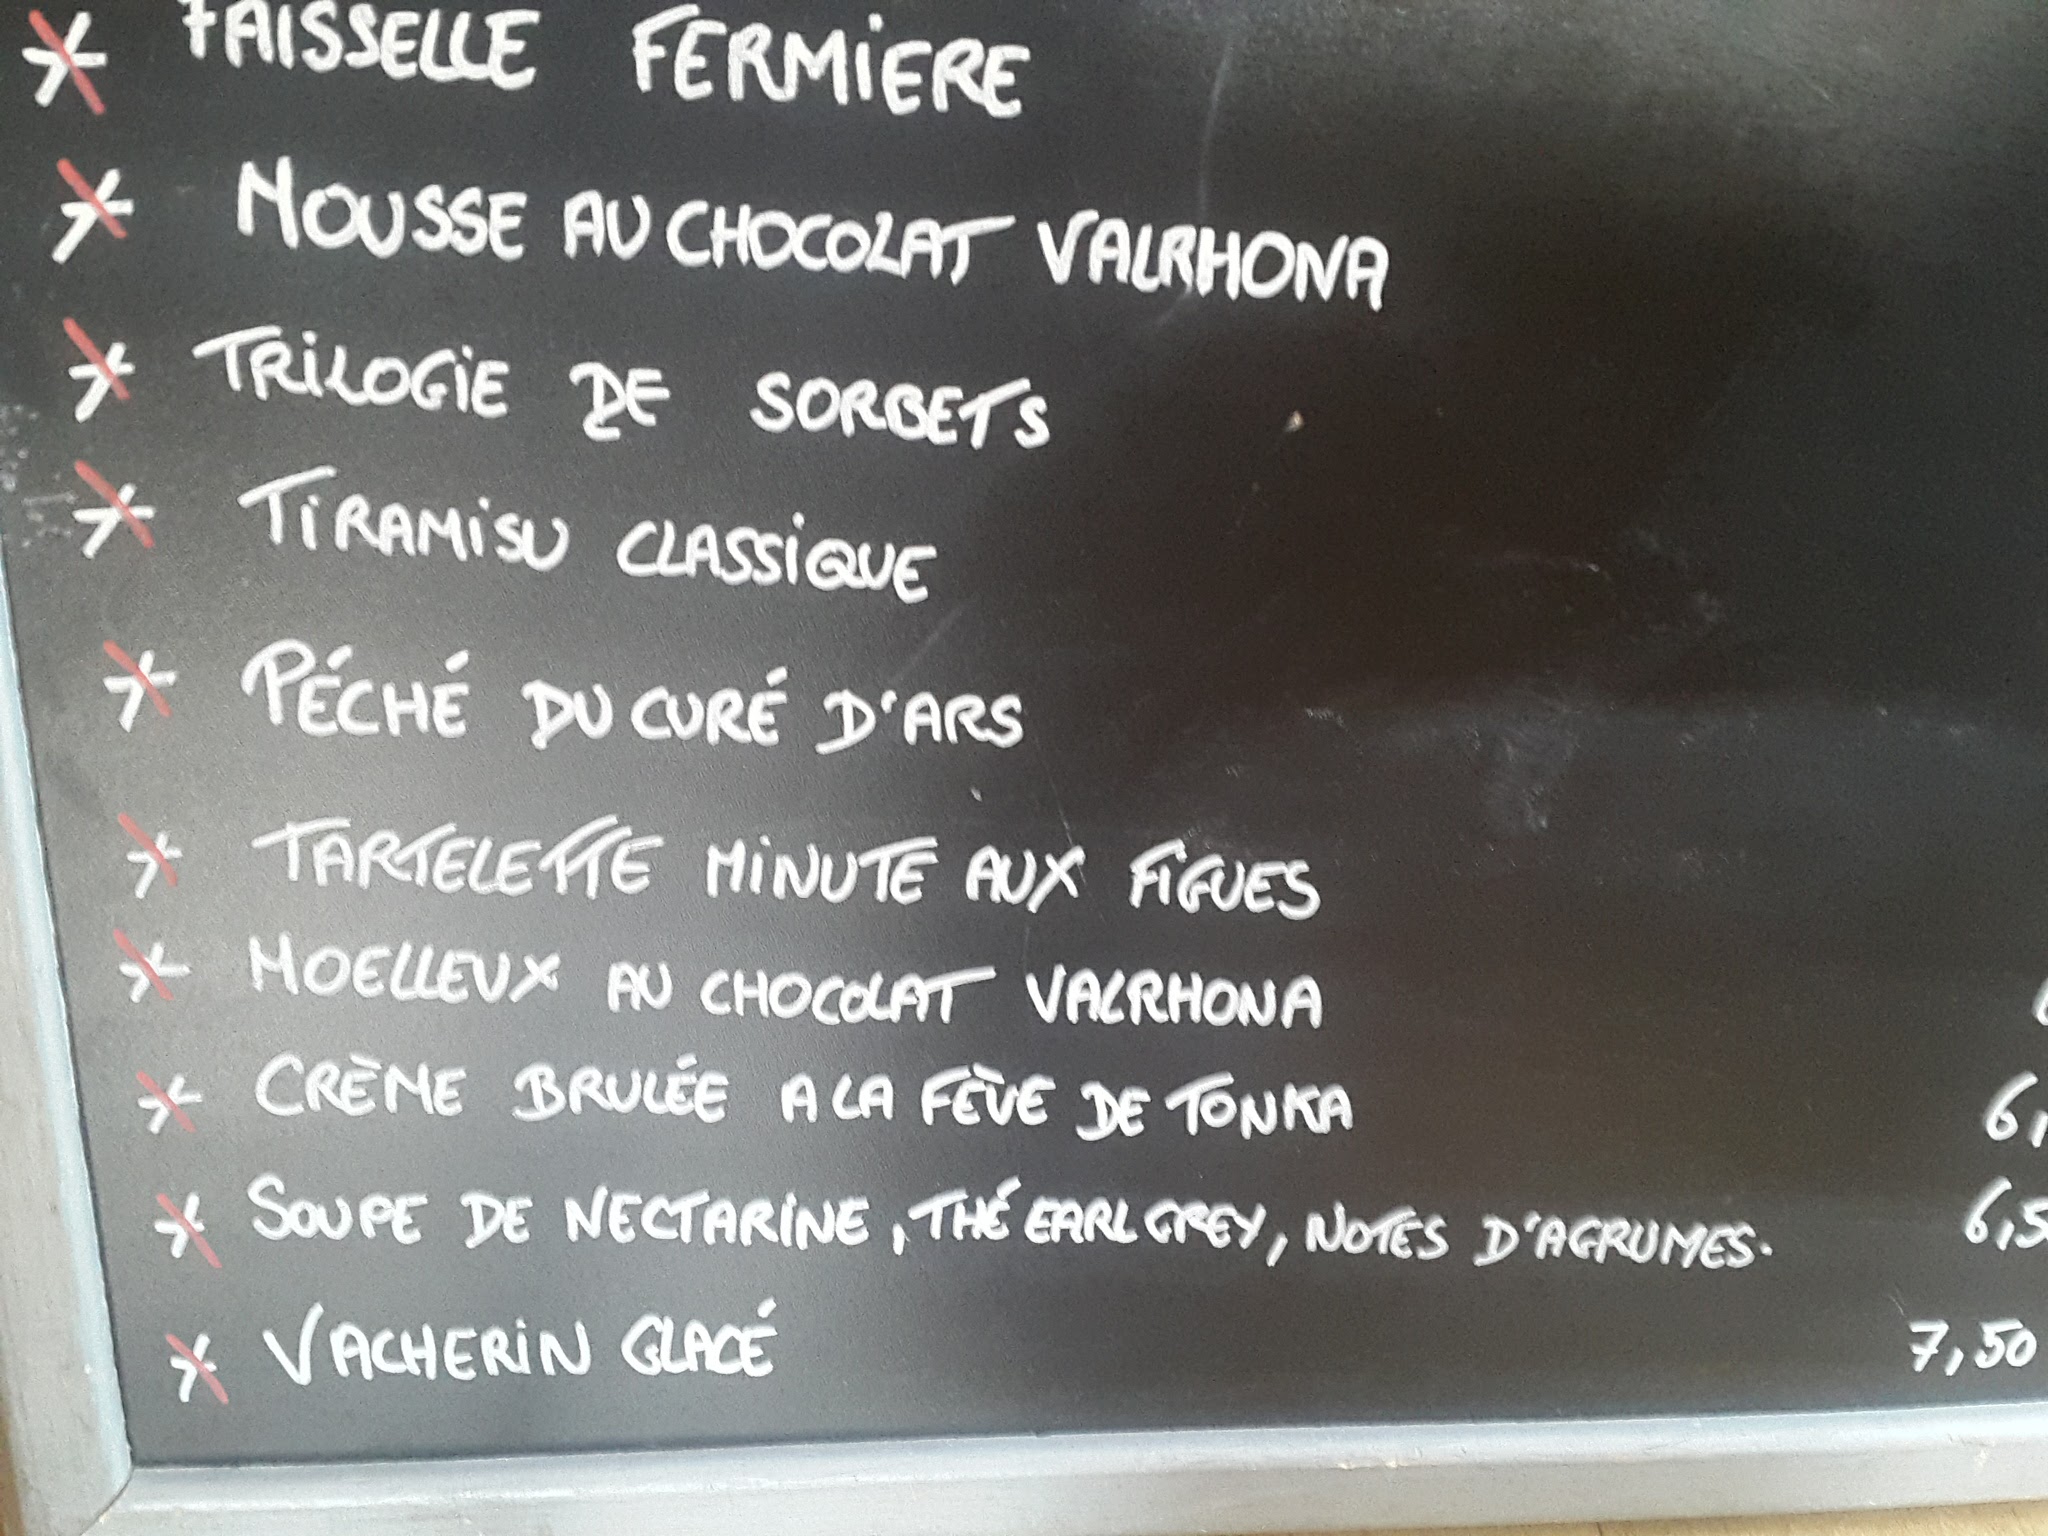 FAISSELLE FERMIERE
MOUSSE AU CHOCOLAT VALRHONA
TRILOGIE DE SORBETS
TIRAMISU CLASSIQUE
PÉCHÉ DU CURÉ D'ARS
TARTELETTE MINUTE AUX FIGUES
MOELLEUX AU CHOCOLAT VALRHONA
CRÈME BRULÉE A LA FÈVE DE TONKA 6,
SOUPE DE NECTARINE, THÉ EARL GREY, NOTES D'AGRUMES. 6,5
VACHERIN GLACÉ 7,50